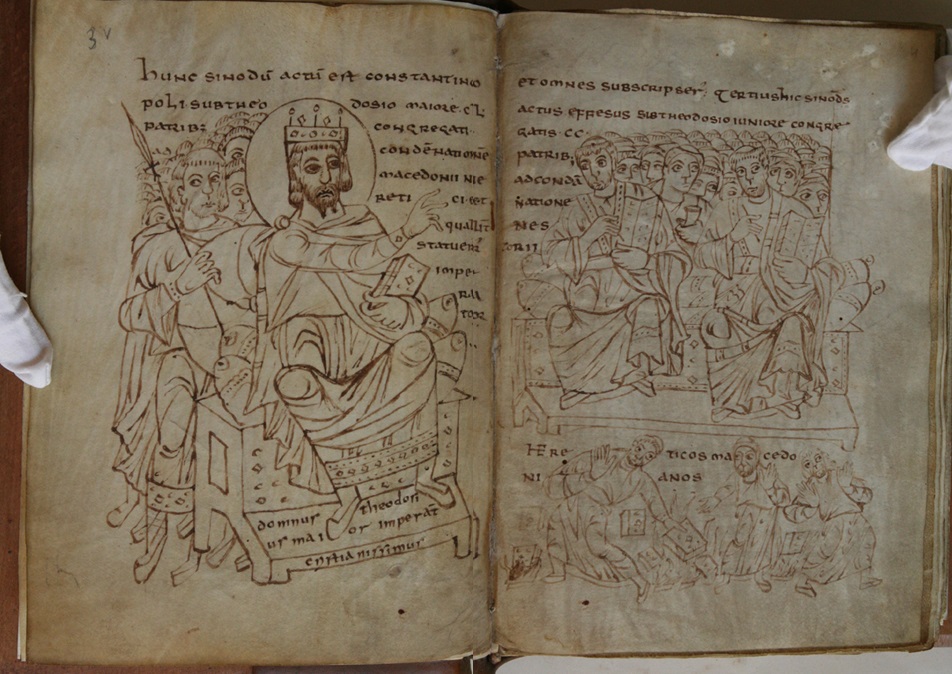 3v
hunc sinodū actū est constantino
poli sub theo dosio maiore. cl
patrib: congregati.
condēnationē
macedonii
reti ci est
quallit
statuerī
imper
tor
domnus theodosi
us mai or imperat
cristianissimus
et omnes subscripser. tertius hic sinods
actus effesus sub theodosio iuniore congre
gatis cc
patrib;
ad condē
natione
nes
torii
here ticos macedo
ni anos